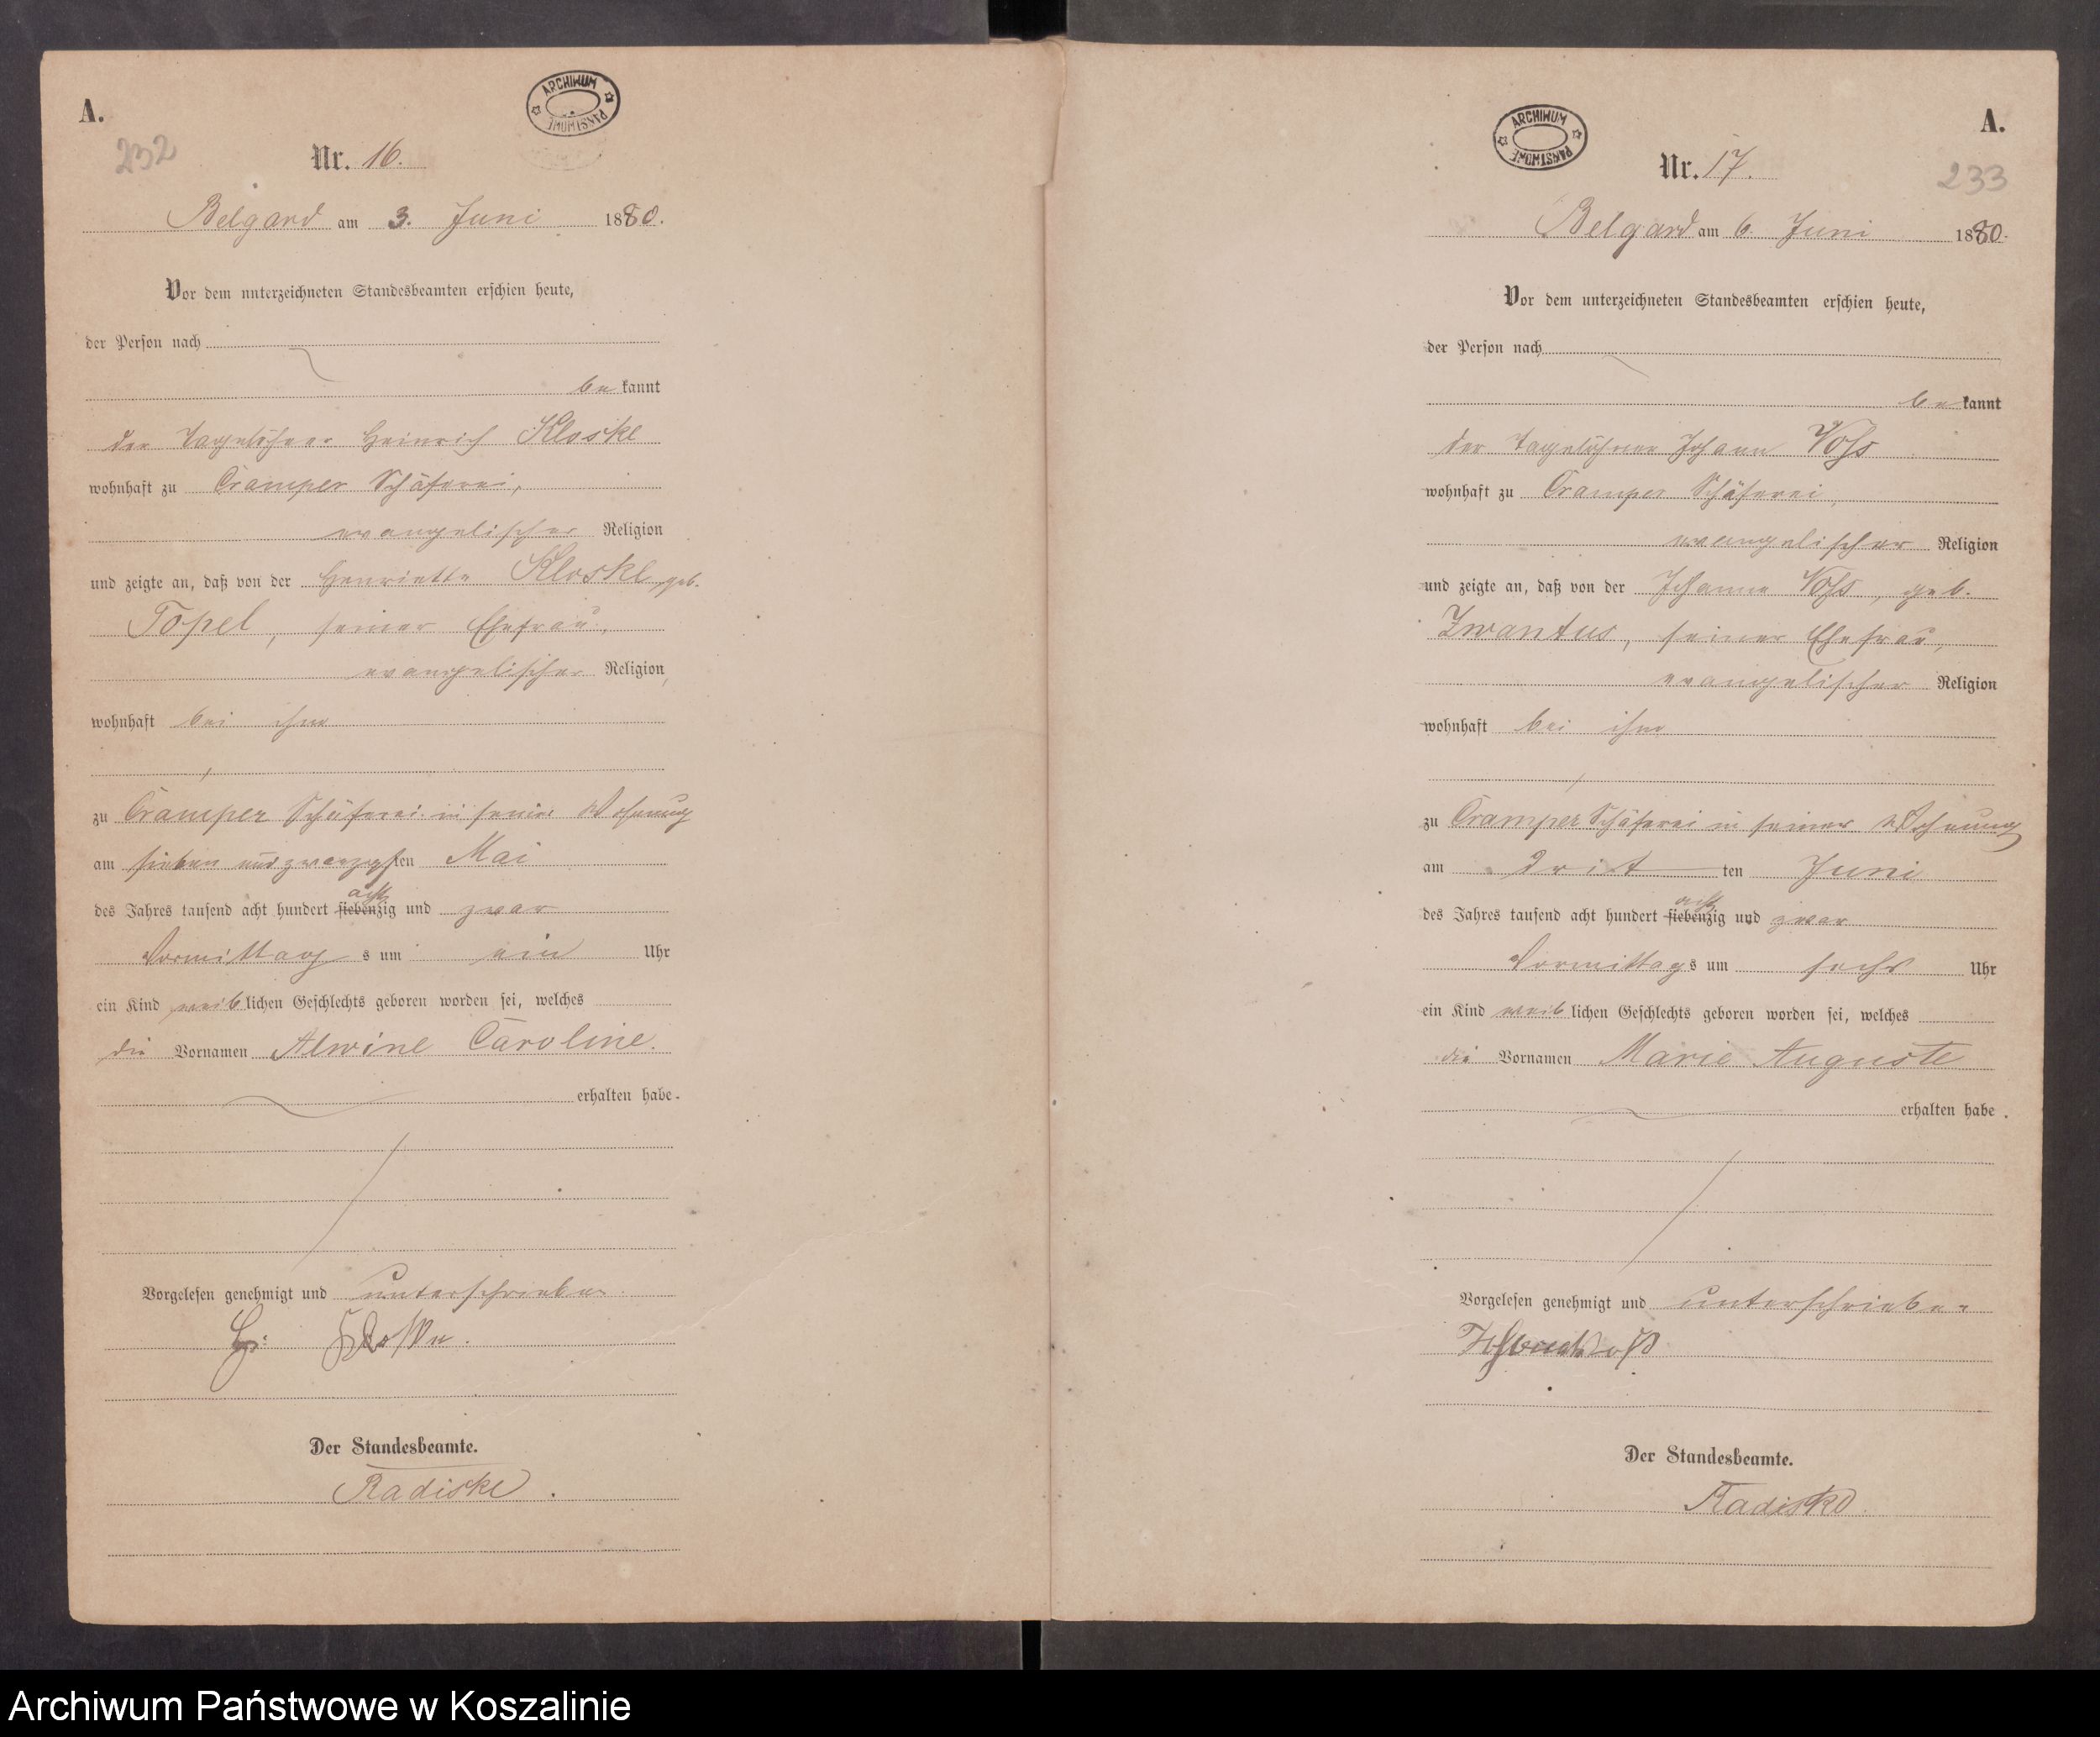 A.
232
ARCHIWUM PAŃSTWOWE
Nr. 16.
Belgard am 3. Juni 1880.
Vor dem unterzeichneten Standesbeamten erschien heute,
der Person nach
bekannt
der Tagelöhner Heinrich Kloske
wohnhaft zu Cramper Schäferei,
evangelischer Religion
und zeigte an, daß von der Henriette Kloske, geb.
Topel, seiner Ehefrau,
evangelischer Religion,
wohnhaft bei ihm
zu Cramper Schäferei in seiner Wohnung
am sieben und zwanzigsten Mai
acht
des Jahres tausend acht hundert siebenzig und zwar
Vormittags um ein Uhr
ein Kind weiblichen Geschlechts geboren worden sei, welches
die Vornamen Alwine Caroline.
erhalten habe.
Vorgelesen genehmigt und unterschrieben
H: Kloske.
Der Standesbeamte.
Radiske.
ARCHIWUM PAŃSTWOWE
A.
233
Nr. 17.
Belgard am 6. Juni 1880.
Vor dem unterzeichneten Standesbeamten erschien heute,
der Person nach
bekannt
der Tagelöhner Johann Voß
wohnhaft zu Cramper Schäferei,
evangelischer Religion
und zeigte an, daß von der Johanne Voß, geb.
Zwantus, seiner Ehefrau,
evangelischer Religion
wohnhaft bei ihm
zu Cramper Schäferei in seiner Wohnung
am dritten Juni
acht
des Jahres tausend acht hundert siebenzig und zwar
Vormittags um sechs Uhr
ein Kind weiblichen Geschlechts geboren worden sei, welches
die Vornamen Marie Auguste
erhalten habe.
Vorgelesen genehmigt und unterschrieben
Johann Voß
Der Standesbeamte.
Radiske
Archiwum Państwowe w Koszalinie